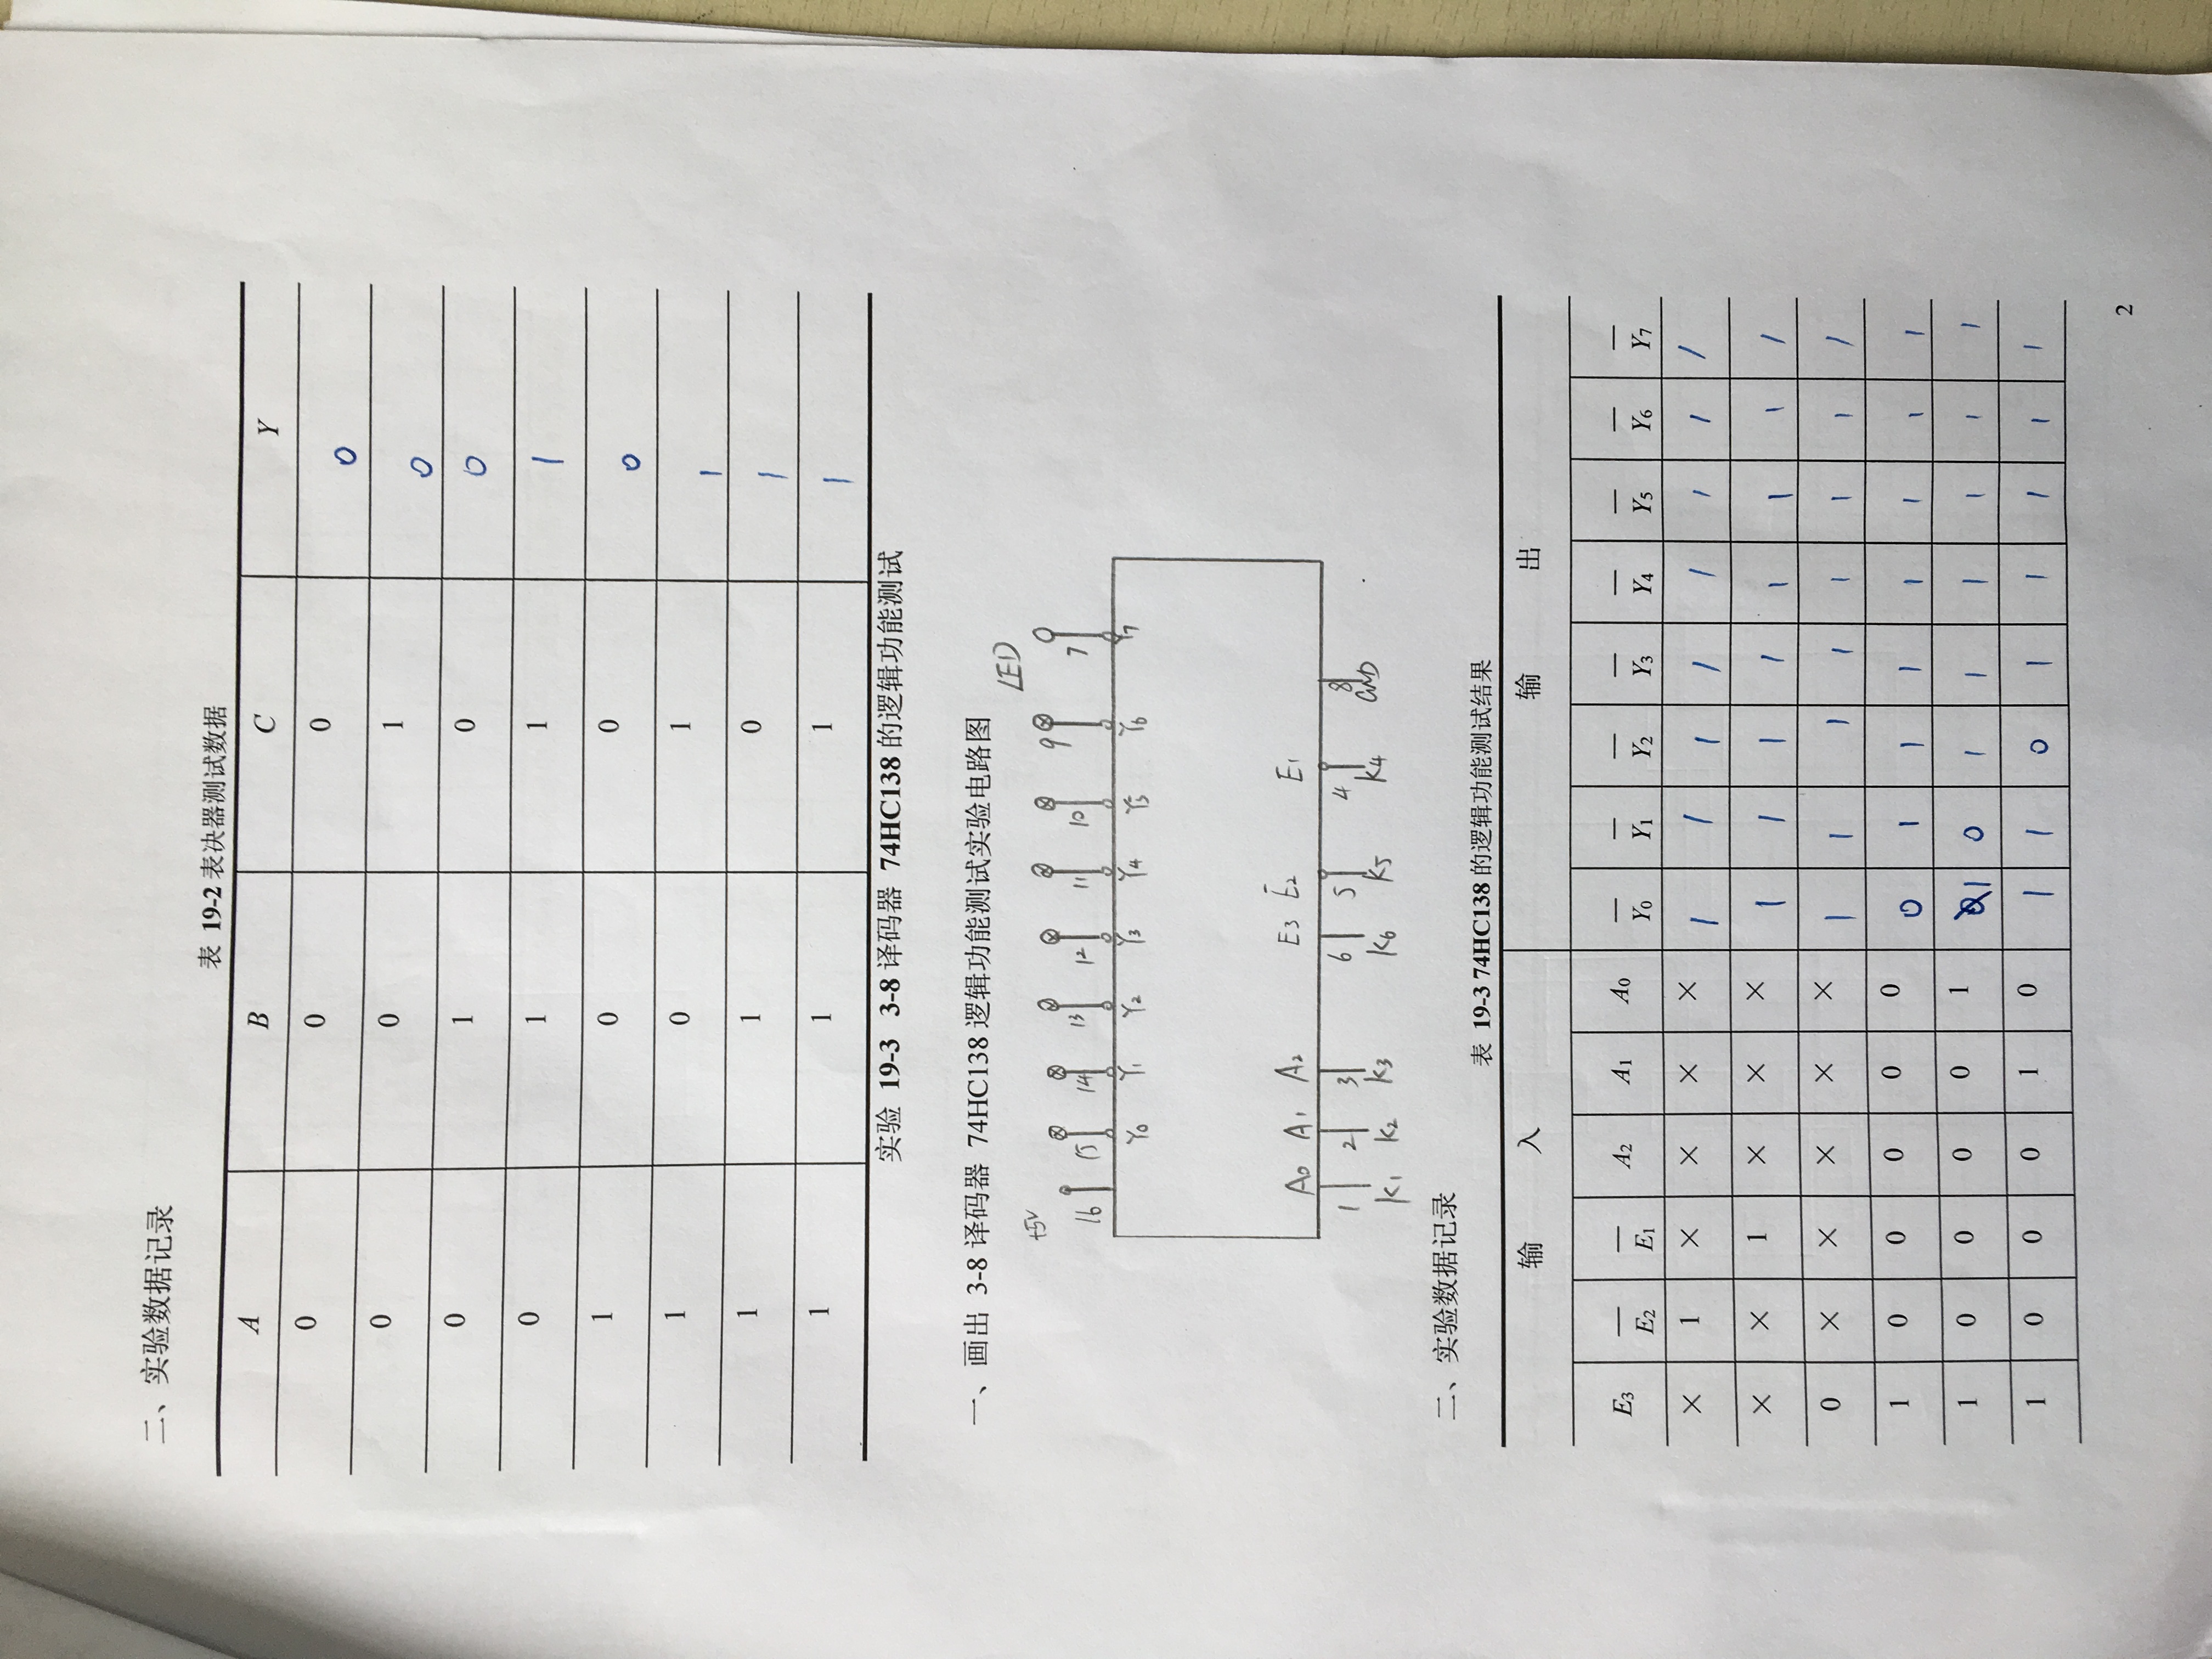 二、实验数据记录
表 19-2 表决器测试数据
A B C Y
0 0 0 0
0 0 1 0
0 1 0 0
0 1 1 1
1 0 0 0
1 0 1 1
1 1 0 1
1 1 1 1
实验 19-3 3-8 译码器 74HC138 的逻辑功能测试
一、画出 3-8 译码器 74HC138 逻辑功能测试实验电路图
+5V LED
16 15 14 13 12 11 10 9 7
Y0 Y1 Y2 Y3 Y4 Y5 Y6 Y7
A0 A1 A2 E3 E̅2 E1
1 2 3 6 5 4 8
K1 K2 K3 K6 K5 K4 GND
二、实验数据记录
表 19-3 74HC138 的逻辑功能测试结果
输 入 输 出
E3 E̅2 E̅1 A2 A1 A0 Y̅0 Y̅1 Y̅2 Y̅3 Y̅4 Y̅5 Y̅6 Y̅7
× 1 × × × × 1 1 1 1 1 1 1 1
× × 1 × × × 1 1 1 1 1 1 1 1
0 × × × × × 1 1 1 1 1 1 1 1
1 0 0 0 0 0 0 1 1 1 1 1 1 1
1 0 0 0 0 1 1 0 1 1 1 1 1 1
1 0 0 0 1 0 1 1 0 1 1 1 1 1
2